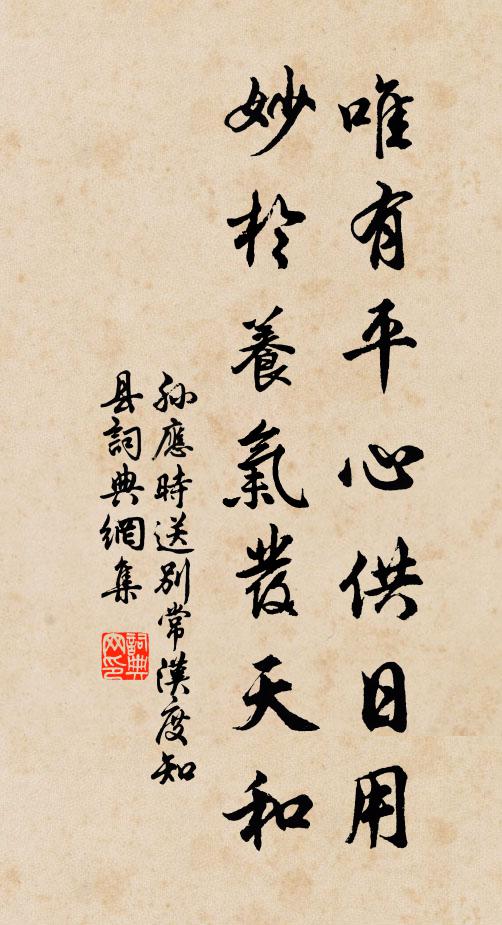 唯有平心供日用
妙於養氣發天和
孫應時送別常漢度知
县詞典網集
詞典
网印